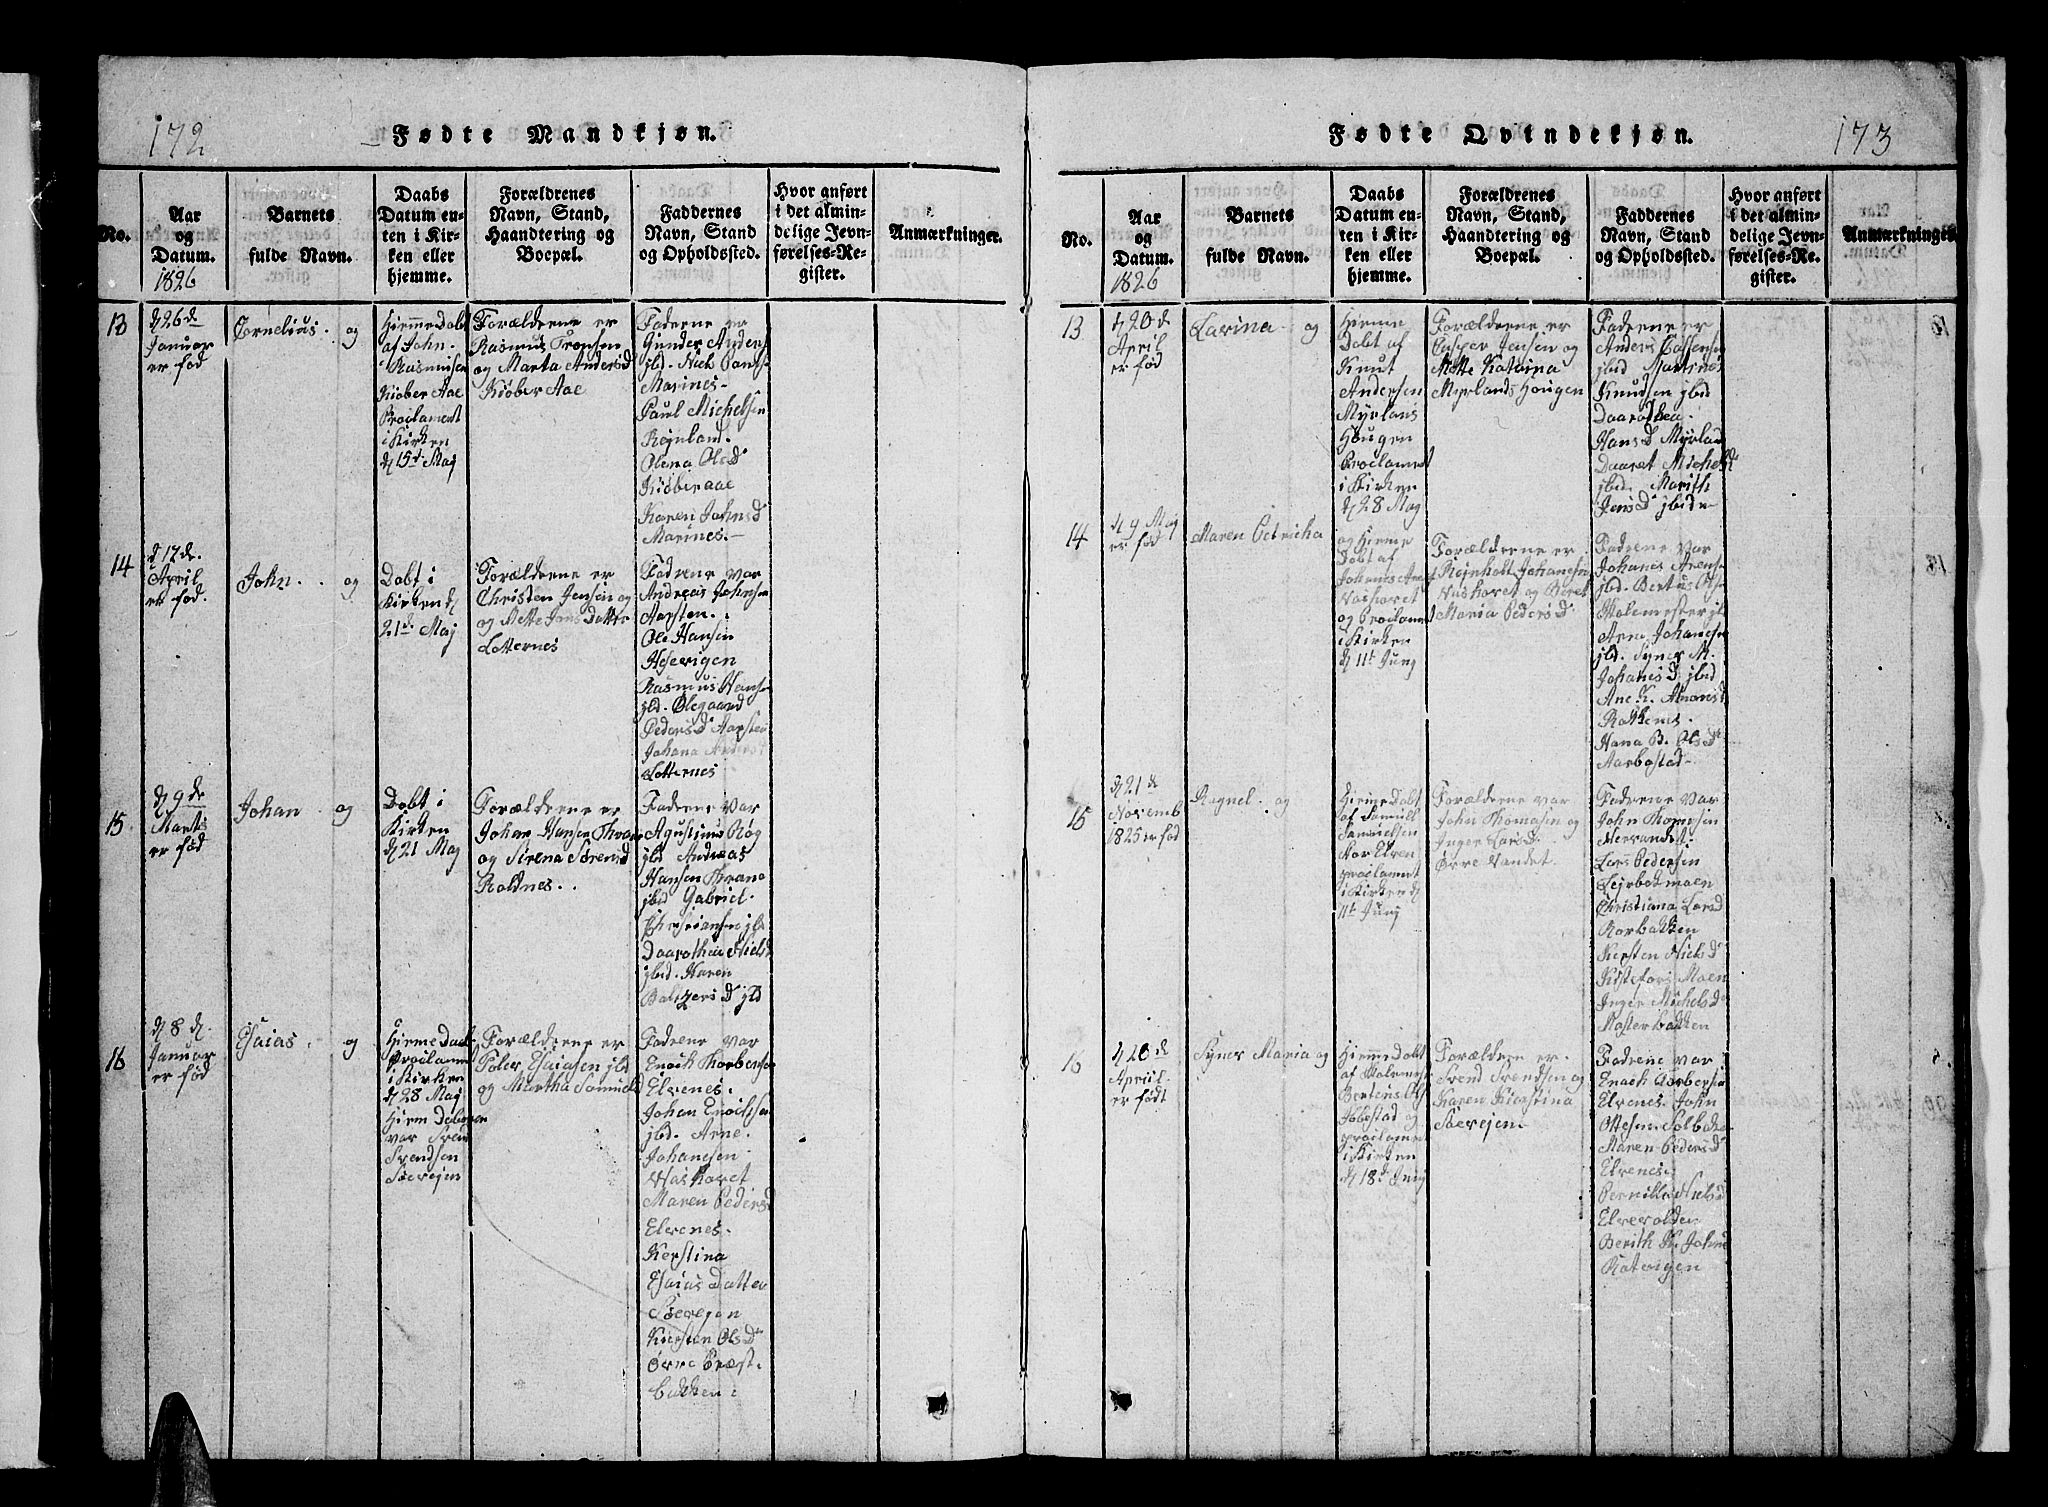 172
Fødte Mandkjøn.
No.
Aar
og
Datum.
1826
Barnets
fulde Navn.
Daabs
Datum en-
ten i Kir-
ken eller
hjemme.
Forældrenes
Navn, Stand,
Haandtering og
Boepæl.
Faddernes
Navn, Stand
og Opholdssted.
Hvor anført
i det almin-
delige Jevn-
førelses-Re-
gister.
Anmærkninger.
13
d 26 de
Januar
er fød
Cornelius. og
Hiemme Dobt
af John.
Rasmusen
Kiøber Aae
Proclamert
i Kirken
d 15 d. Maj
Forælderne er
Rasmus Tronsen
og Marta Andersd
Kiøber Aae
Faderne er
Gunder Anders
jbd. Nich
Marines.
Paul Michelsen
Røjnland.
Olena Olsd
Kiøberaae
Karen Johnsd
Marines.
14
d 17 de.
April
er fød.
John. og
Dobt i
Kirken d
21 d. Maj
Forælderne er
Christen Jensen og
og Mette Jons Datter
Lotternes
Fadrene var
Andreas Johnsen
Aarsten.
Ole Hansen
Hesevigen
Rasmus Hans
jbd. Olegaard
Pedersd Aarsten
Johana Andersd
Lotternes
15
d 9 de
Marts
er fød
Johan. og
Dobt i
Kirken
d 21 Maj
Forælderne er
Johan Hansen Thrane
og Sirena Sørensd
Roldnes.
Fadrene var
Agustinus Røg
jbd Andreas
Hansen Thrana
jbd Gabriel
Christiansen jb
Daarothea Nielsd
jbd. Karen
Baltzersd jbd
16
d 8 d.
Januar
er fød
Esaias. og
Hieme Døbt
Proclamert
i Kirken
d 28 Maj
Hiem Døberen
var Svend
Svendsen
Søevejen
Forælderne er
Peter Esaiasen jbd
og Martha Samuelsd
Fadrene var
Enoch Thorbensen
Elvenes.
Johan Enochsen
jbd. Arne.
Johanesen
Vashovet
Maren Pedersd
Elvenes.
Kerstina
Esaias Datter
Søevejen
Kiersten Olsd
Øvre Præst-
bakken.
173
Fødte Qvindekjøn.
No.
Aar
og
Datum.
1826
Barnets
fulde Navn.
Daabs
Datum en-
ten i Kir-
ken eller
hjemme.
Forældrenes
Navn, Stand,
Haandtering og
Boepæl.
Faddernes
Navn, Stand
og Opholdssted.
Hvor anført
i det almin-
delige Jevn-
førelses-Re-
gister.
Anmærkninger.
13
d 20 d
April
er fød
Larina. og
Hieme
Dobt af
Knut
Andersen
Myrlans
Hougen
Proclamert
i Kirken
d 28 Maj
Forælderne er
Casper Jensen og
Mette Katrina
Myrlands Hougen
Fadrene er
Anders
jbid Martines
Knudsen jbid
Daarothea
Hansd Myrlan
Daaret Michelsd
jbid. Marith
Jensd jbid
14
d 9 Maj
er fød
Maren Petricha
og Hieme
Dobt af
Johanes Arens
Vashovet
og Proclamert
i Kirken
d 11t Junj
Forælderne er
Rejnholt Johanesen
Vashovet og Beret
Maria Pedersd
Fadrene var
Johanes Arens
jbd. Bertus Ols
Skolemester jb
Aren Johanesen
jbd. Syner M.
Johanesd jbid
Ane K. Amonsd
Rotkenes.
Hana B. Olsd
Aarbostad
15
d 21 de
Novemb
1825 er fød
Ragnel. og
Hieme Dobt
af Samuel
Samuelsen
Stor Elven
proclamert
i Kirken d
11t Junj
Forælderne var
John Thomasen og
Inger Larsd.
Øvre Vandet.
Fadrene var
John Thomesen
Nervandet.
Lars Pedersen
Lejrbekmoen
Christiana Larsd
Korbakken
Kersten Nielsd
Kistefors Moen
Inger Michelsd
Klosterbakken
16
d 20 d
Apriil
er født
Syner Maria og
Hieme Dobt
af Skolemest
Bertens Ols
Aobostad og
proclamert
i Kirken
d 18 d Junj
Forældrne er
Svend Svendsen og
Karen Kierstina
Søevejen.
Fadrene var
Enoch Torbersen
Elvenes. John
Ottesen Solbak
Maren Pedersd
Elvenes.
Pernilla Nielsd
Elvevolden
Berith K. Johns
Rotvigen